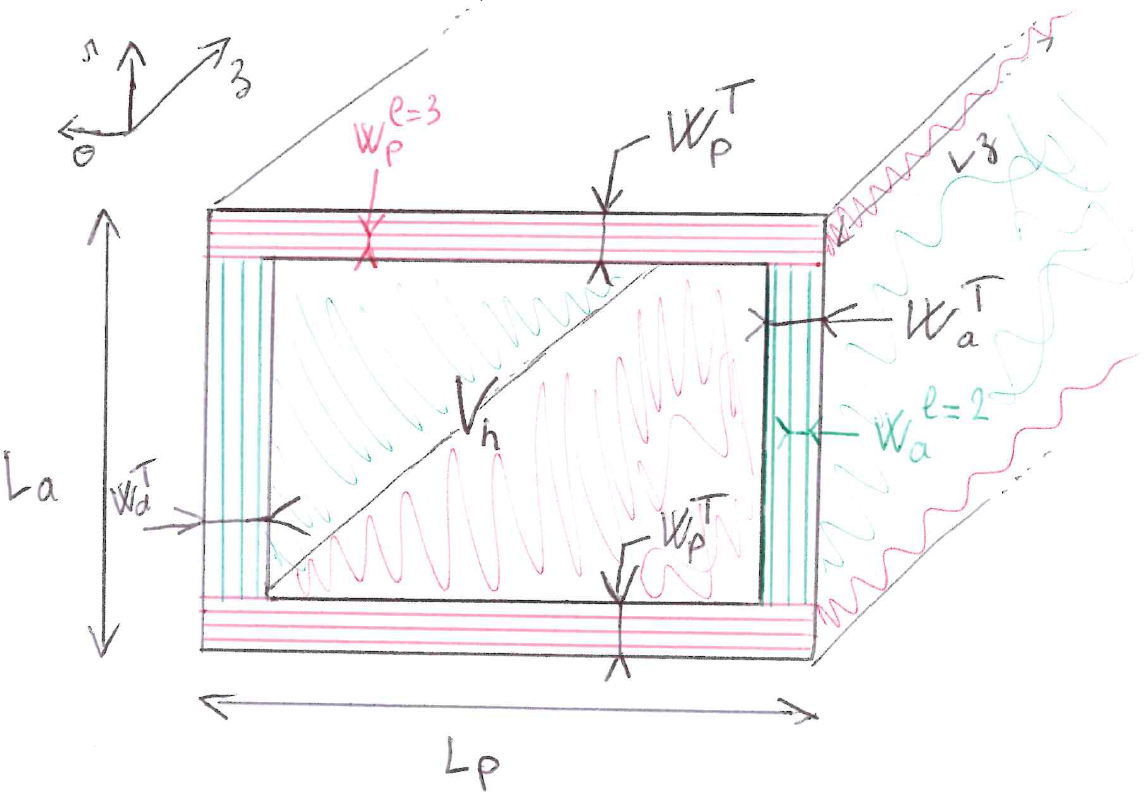 r
z
θ
W_p^{l=3}
W_p^T
Lz
W_a^T
V_h
W_a^{l=2}
La
W_a^T
W_p^T
Lp